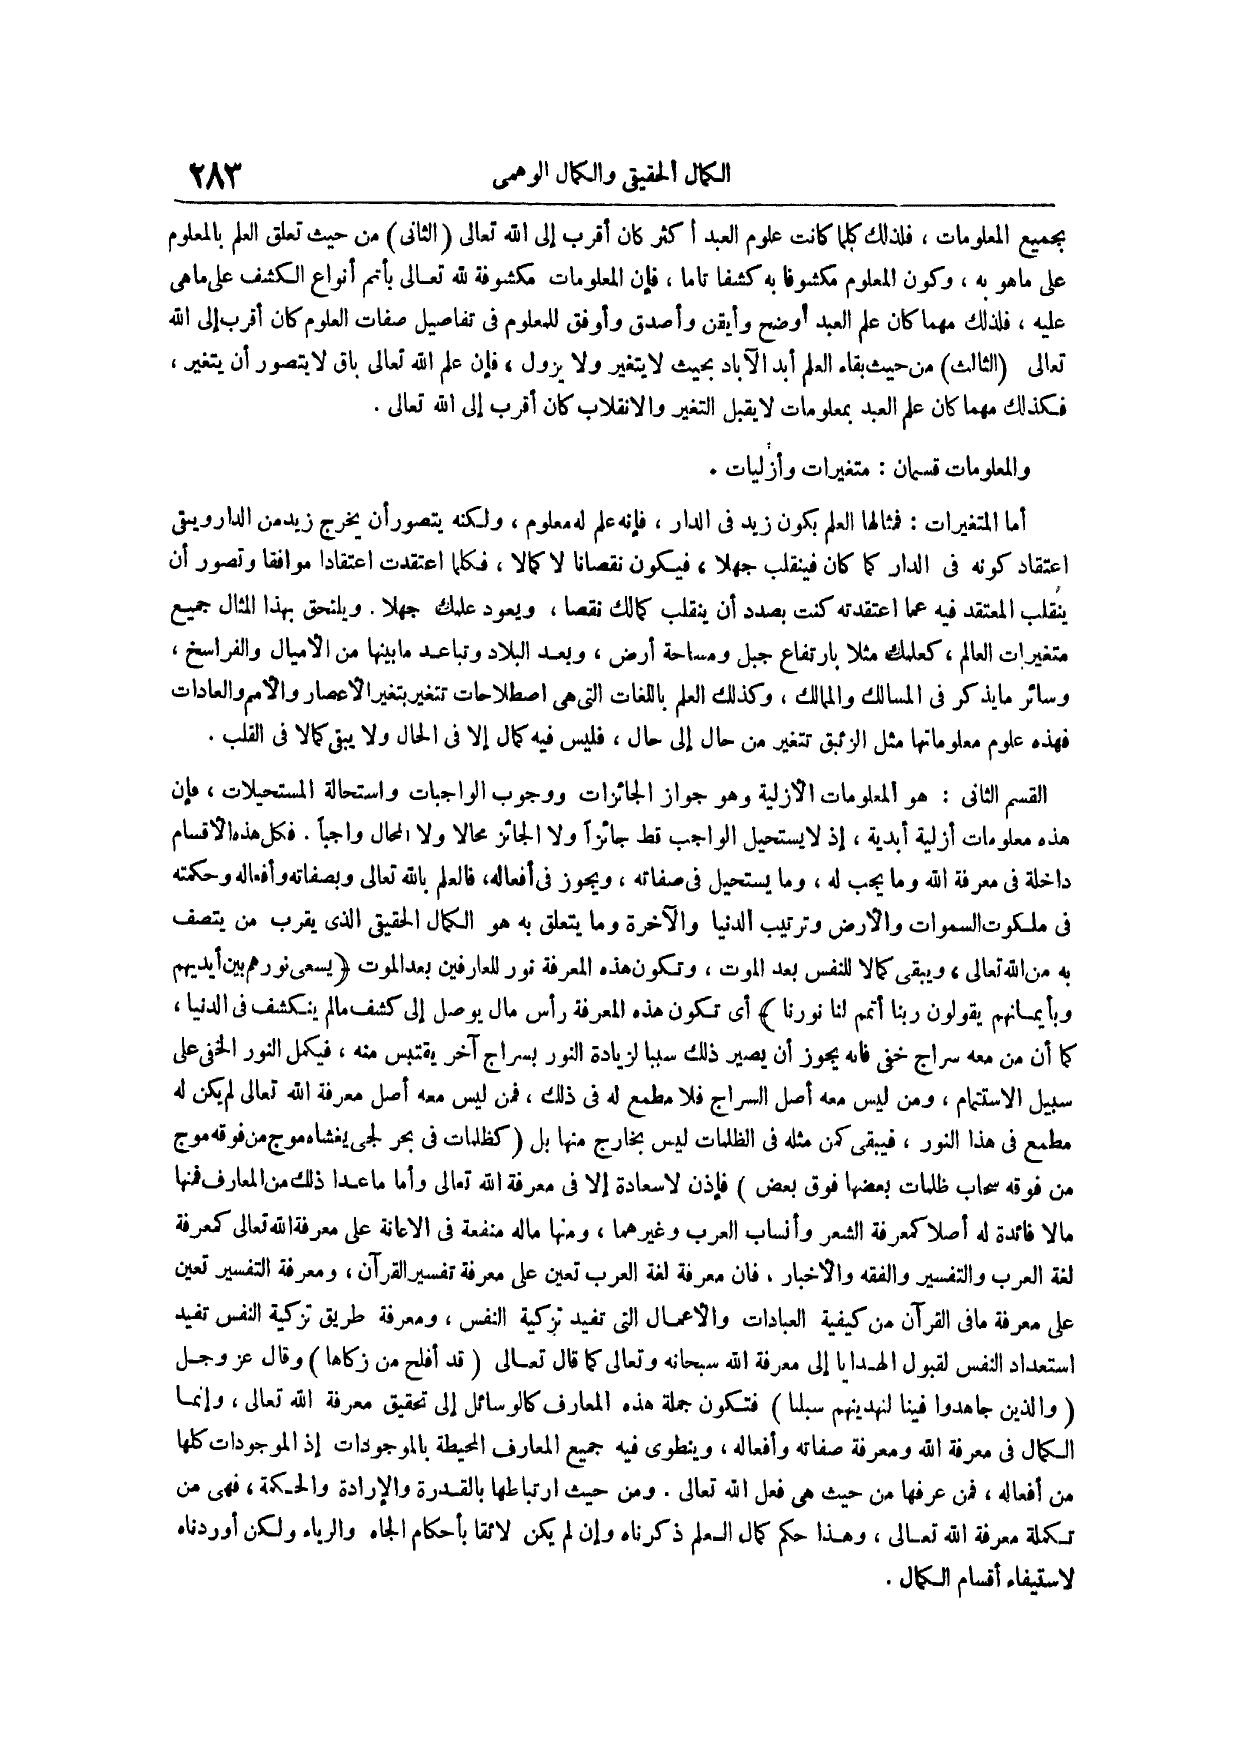 الكمال الحقيقى والكمال الوهمى
٢٨٣
بجميع المعلومات ، فلذلك كلما كانت علوم العبد أكثر كان أقرب إلى الله تعالى (الثانى) من حيث تعلق العلم بالمعلوم
على ماهو به ، وكون المعلوم مكشوفا به كشفا تاما ، فإن المعلومات مكشوفة لله تعالى بأتم أنواع الكشف على ماهى
عليه ، فلذلك مهما كان علم العبد أوضح وأيقن وأصدق وأوفق للمعلوم فى تفاصيل صفات العلوم كان أقرب إلى الله
تعالى (الثالث) من حيث بقاء العلم أبد الآباد بحيث لايتغير ولا يزول ، فإن علم الله تعالى باق لايتصور أن يتغير ،
فكذلك مهما كان علم العبد بمعلومات لايقبل التغير والانقلاب كان أقرب إلى الله تعالى .
والمعلومات قسمان : متغيرات وأزليات .
أما المتغيرات : فمثالها العلم بكون زيد فى الدار ، فإنه علم له معلوم ، ولكنه يتصور أن يخرج زيد من الدار ويبقى
اعتقاد كونه فى الدار كما كان فينقلب جهلا ، فيكون نقصانا لا كمالا ، فكلما اعتقدت اعتقادا موافقا وتصور أن
ينقلب المعتقد فيه عما اعتقدته كنت بصدد أن ينقلب كمالك نقصا ، ويعود علمك جهلا . ويلتحق بهذا المثال جميع
متغيرات العالم ، كعلمك مثلا بارتفاع جبل ومساحة أرض ، وبعد البلاد وتباعد مابينها من الأميال والفراسخ ،
وسائر مايذكر فى المسالك والممالك ، وكذلك العلم باللغات التى هى اصطلاحات تتغير بتغير الأعصار والأمم والعادات
فهذه علوم معلوماتها مثل الزئبق تتغير من حال إلى حال ، فليس فيه كمال إلا فى الحال ولا يبقى كمالا فى القلب .
القسم الثانى : هو المعلومات الأزلية وهو جواز الجائزات ووجوب الواجبات واستحالة المستحيلات ، فإن
هذه معلومات أزلية أبدية ، إذ لايستحيل الواجب قط جائزاً ولا الجائز محالا ولا المحال واجباً . فكل هذه الأقسام
داخلة فى معرفة الله وما يجب له ، وما يستحيل فى صفاته ، ويجوز فى أفعاله، فالعلم بالله تعالى وبصفاته وأفعاله وحكمته
فى ملكوت السموات والأرض وترتيب الدنيا والآخرة وما يتعلق به هو الكمال الحقيقى الذى يقرب من يتصف
به من الله تعالى ، ويبقى كمالا للنفس بعد الموت ، وتكون هذه المعرفة نور للعارفين بعد الموت ﴿يسعى نورهم بين أيديهم
وبأيمانهم يقولون ربنا أتمم لنا نورنا ﴾ أى تكون هذه المعرفة رأس مال يوصل إلى كشف مالم ينكشف فى الدنيا ،
كما أن من معه سراج خفى فانه يجوز أن يصير ذلك سببا لزيادة النور بسراج آخر يقتبس منه ، فيكمل النور الخفى على
سبيل الاستتمام ، ومن ليس معه أصل السراج فلا مطمع له فى ذلك ، فمن ليس معه أصل معرفة الله تعالى لم يكن له
مطمع فى هذا النور ، فيبقى كمن مثله فى الظلمات ليس بخارج منها بل ( كظلمات فى بحر لجى يغشاه موج من فوقه موج
من فوقه سحاب ظلمات بعضها فوق بعض ) فإذن لاسعادة إلا فى معرفة الله تعالى وأما ماعدا ذلك من المعارف فمنها
مالا فائدة له أصلا كمعرفة الشعر وأنساب العرب وغيرهما ، ومنها ماله منفعة فى الاعانة على معرفة الله تعالى كمعرفة
لغة العرب والتفسير والفقه والأخبار ، فان معرفة لغة العرب تعين على معرفة تفسير القرآن ، ومعرفة التفسير تعين
على معرفة مافى القرآن من كيفية العبادات والأعمال التى تفيد تزكية النفس ، ومعرفة طريق تزكية النفس تفيد
استعداد النفس لقبول الهداية إلى معرفة الله سبحانه وتعالى كما قال تعالى ( قد أفلح من زكاها ) وقال عز وجل
( والذين جاهدوا فينا لنهدينهم سبلنا ) فتكون جملة هذه المعارف كالوسائل إلى تحقيق معرفة الله تعالى ، وإنما
الكمال فى معرفة الله ومعرفة صفاته وأفعاله ، وينطوى فيه جميع المعارف المحيطة بالموجودات إذ الموجودات كلها
من أفعاله ، فمن عرفها من حيث هى فعل الله تعالى . ومن حيث ارتباطها بالقدرة والإرادة والحكمة ، فهى من
تكملة معرفة الله تعالى ، وهذا حكم كمال العلم ذكرناه وإن لم يكن لائقا بأحكام الجاه والرياء ولكن أوردناه
لاستيفاء أقسام الكمال .